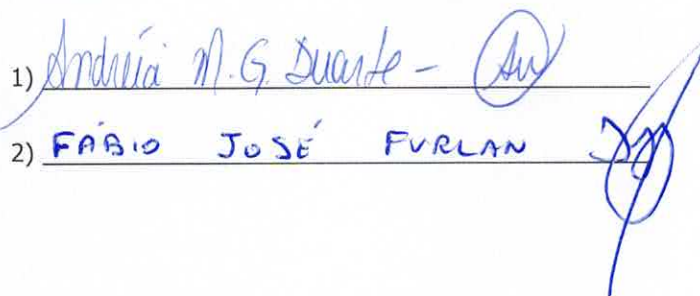 1) Andréia M. G. Duarte -
2) FÁBIO JOSÉ FURLAN